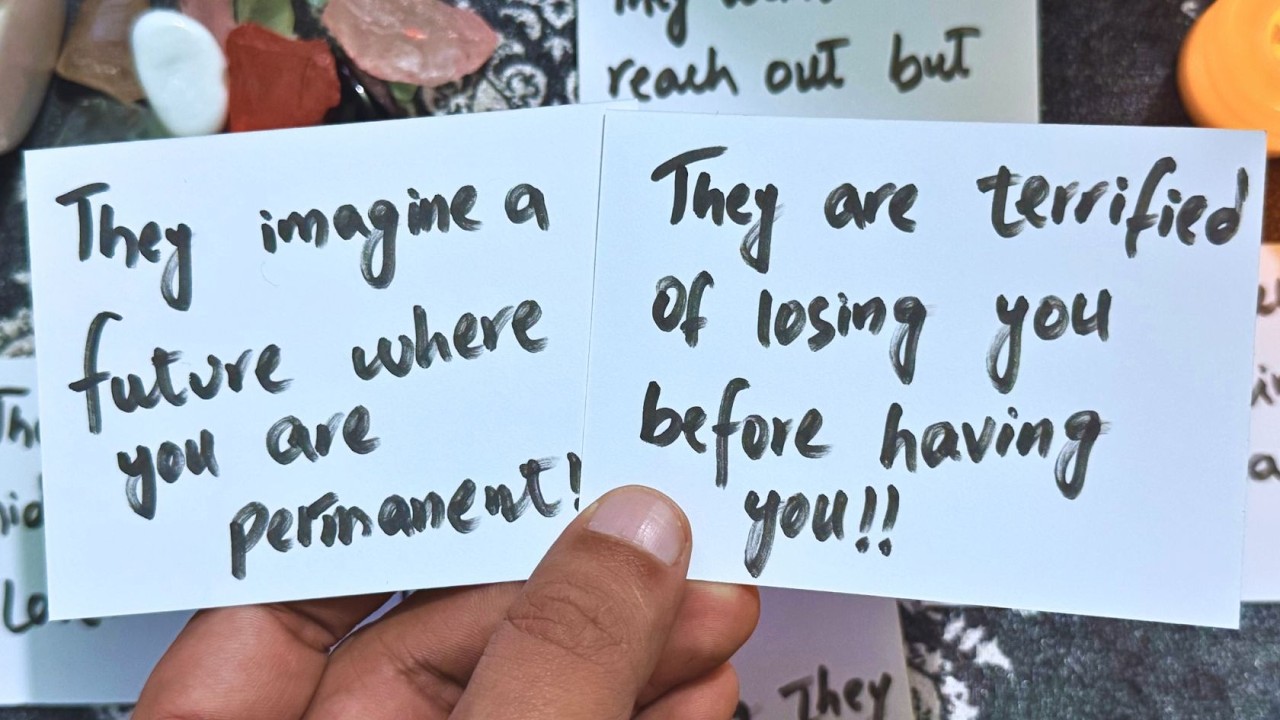 reach out but
They imagine a
future where
you are
permanent!
They are terrified
of losing you
before having
you!!
They